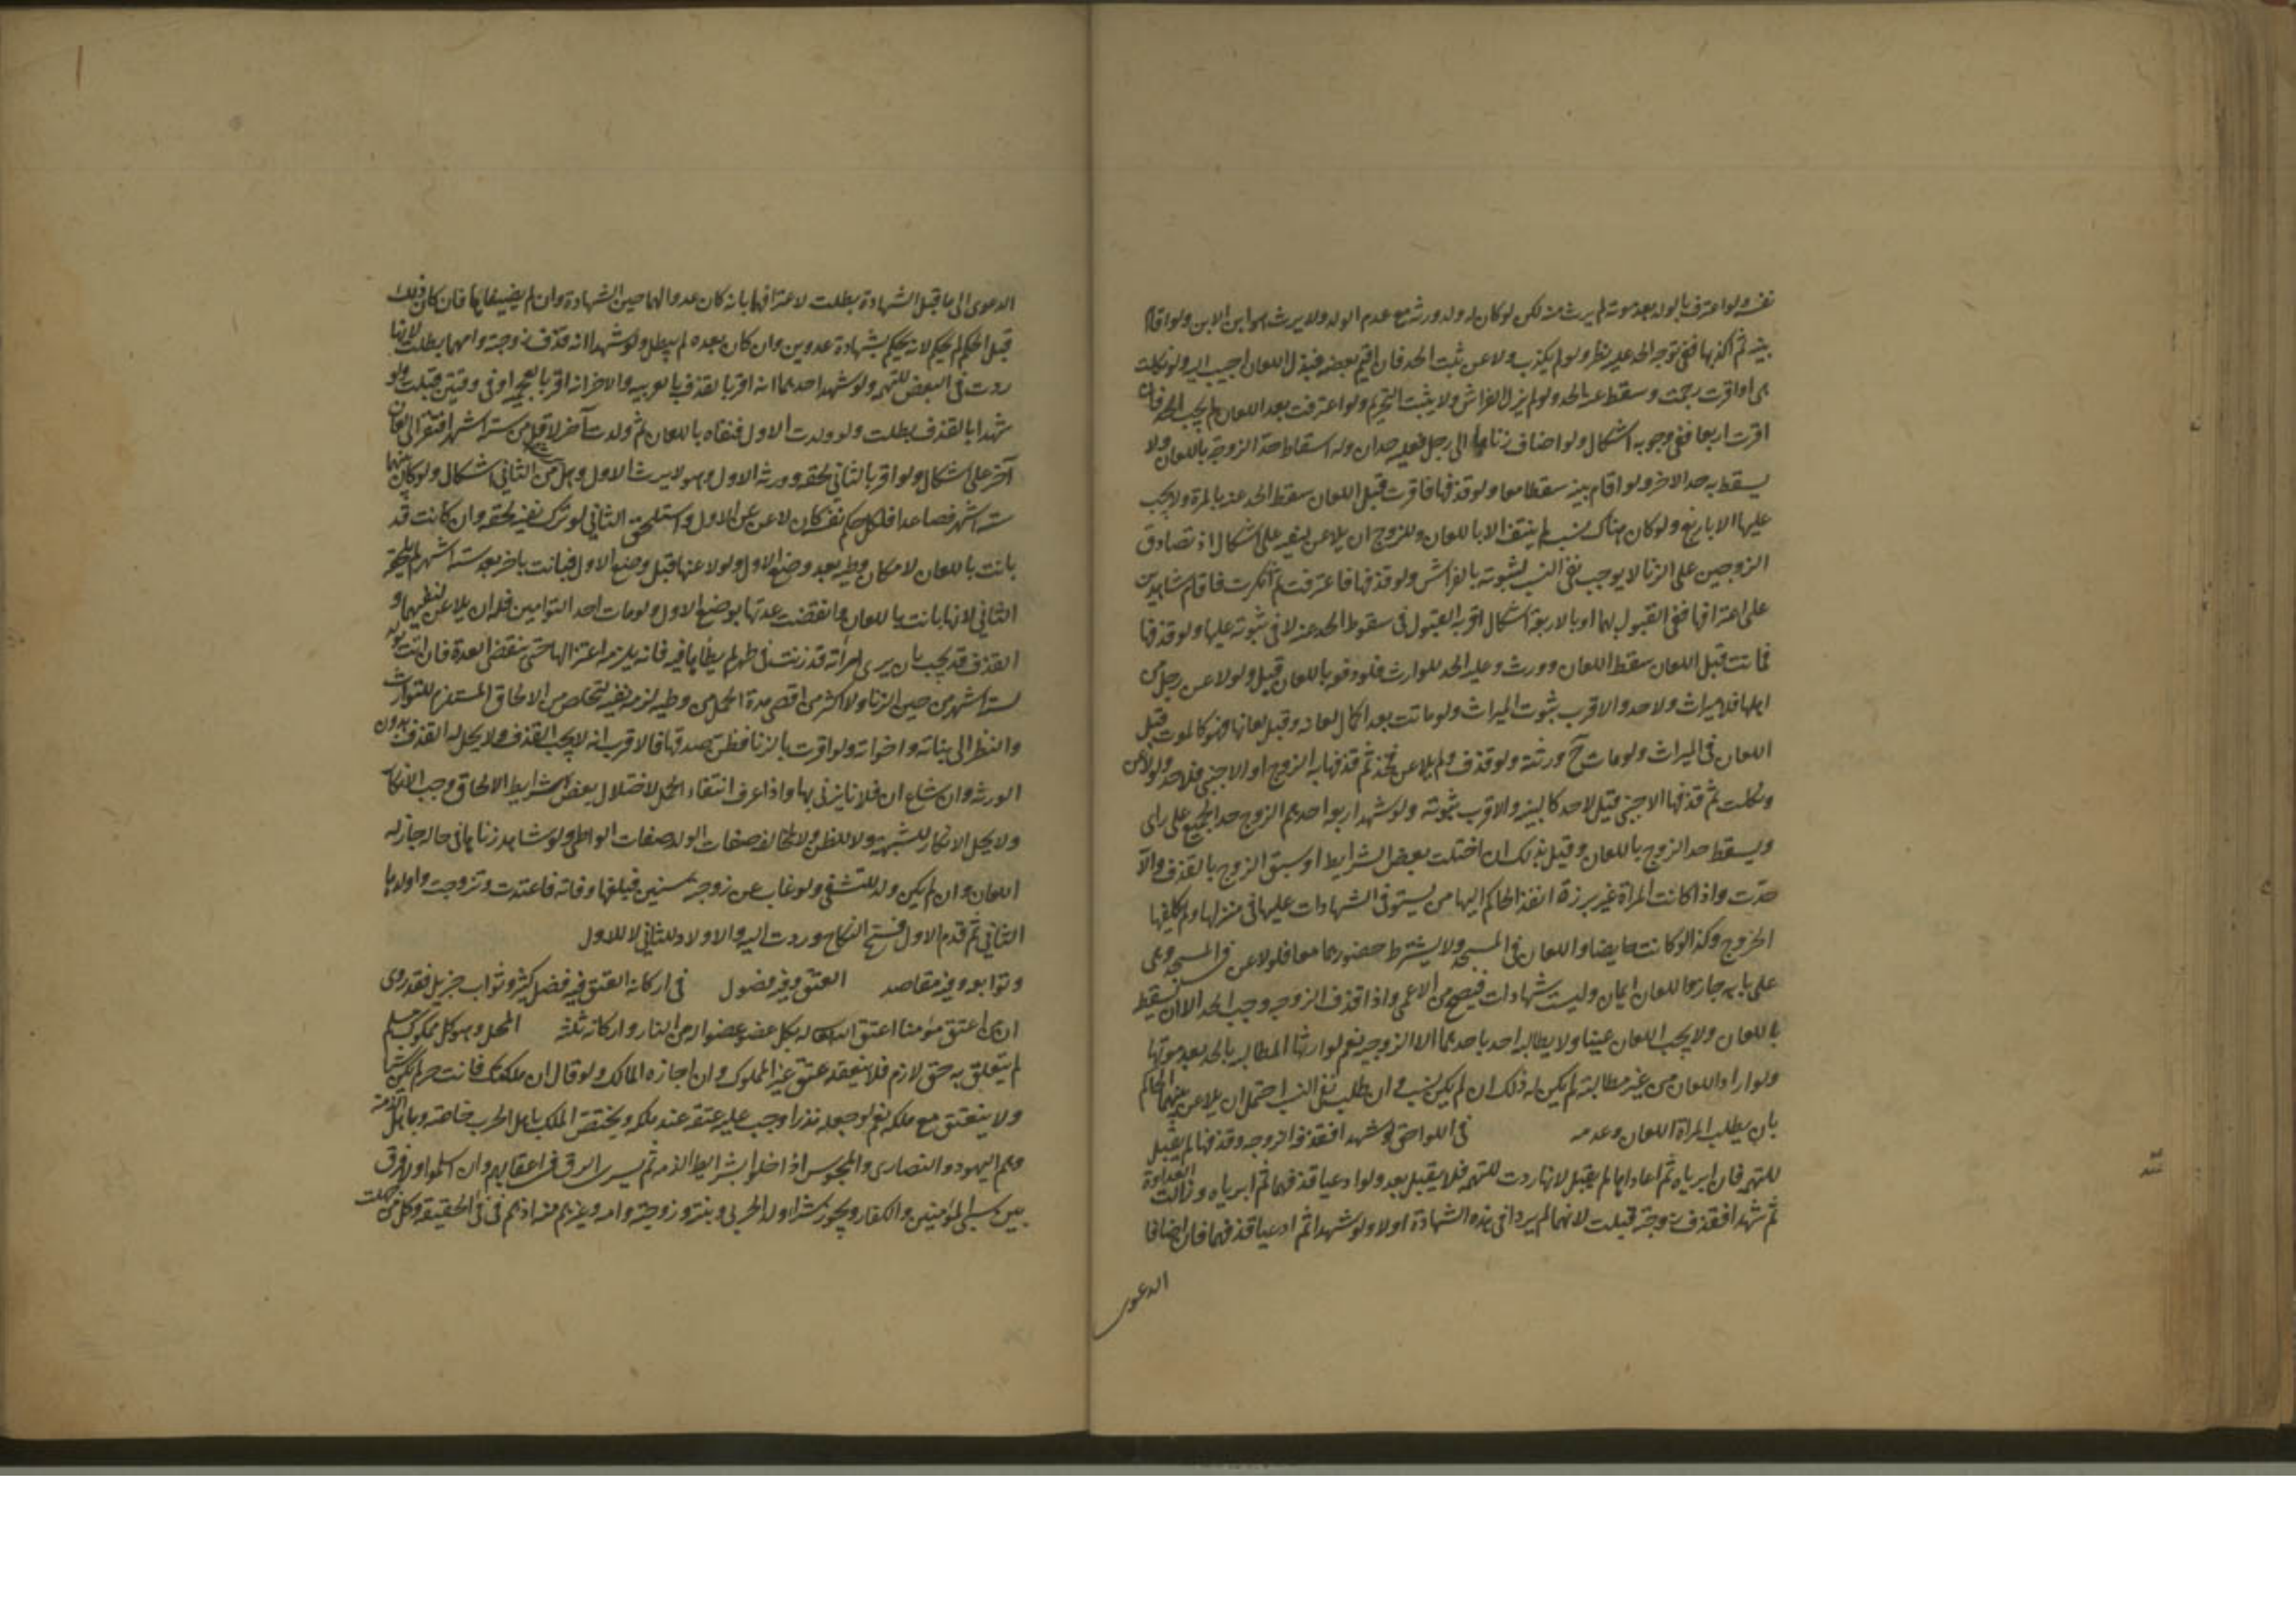 نفسه ولو اعترف بالولد بعد موته لم يرث منه لكن لو كان له ولد ورثه مع عدم الولد ولا يرث هو ابن الابن ولو اقام
بينة ثم اكذبها ففى توجه الحد عليه نظر ولو لم يكذب ولا عن ثبت الحد فان اقيم بعضه فبذل اللعان اجيب اليه ولو نكلت
هى او اقرت رجمت وسقط عنه الحد ولم يزل الفراش ولا يثبت التحريم ولو اعترفت بعد اللعان لم يجب الحد فان
اقرت اربعا ففى وجوبه اشكال ولو اضاف زناها الى رجل فعليه حدان وله اسقاط حد الزوجة باللعان ولا
يسقط به حد الاخر ولو اقام بينة سقطا معا ولو قذفها فاقرت قبل اللعان سقط الحد عنه بالمرة ولا يجب
عليها الا باربع ولو كان هناك نسب لم ينتف الا باللعان وللزوج ان يلاعن لنفيه على اشكال اذ تصادق
الزوجين على الزنا لا يوجب نفى النسب لثبوته بالفراش ولو قذفها فاعترفت ثم انكرت فاقام شاهدين
على اعترافها ففى القبول بهما او بالاربعة اشكال اقربه القبول فى سقوط الحد عنه لا فى ثبوته عليها ولو قذفها
فماتت قبل اللعان سقط اللعان وورث وعليه الحد للوارث فلو دفعه باللعان قيل ولو لاعن رجل من
اهلها فلا ميراث ولا حد والاقرب ثبوت الميراث ولو ماتت بعد اكمال لعانه وقبل لعانها فهو كالموت قبل
اللعان فى الميراث ولو مات ح ورثته ولو قذف ولم يلاعن فحد ثم قذفها به الزوج او الاجنبى فلا حد ولو لاعن
ونكلت ثم قذفها الاجنبى قيل لا حد كالبينة والاقرب ثبوته ولو شهد اربعة احدهم الزوج حد الجميع على راى
ويسقط حد الزوج باللعان وقيل بذلك ان اختلت بعض الشرايط او سبق الزوج بالقذف والا
حدت واذا كانت المراة غير برزة انفذ الحاكم اليها من يستوفى الشهادات عليها فى منزلها ولم يكلفها
الخروج وكذا لو كانت حايضا واللعان فى المسجد ولا يشترط حضورهما معا فلو لاعن فى المسجد وهى
على بابه جاز واللعان ايمان وليست شهادات فيصح من الاعمى واذا قذف الزوجة وجب الحد الا ان يسقط
باللعان ولا يجب اللعان عينا ولا يطالبه احد باحدهما الا الزوجة نعم لوارثها المطالبة بالحد بعد موتها
ولو اراد اللعان من غير مطالبة لم يكن له ذلك ان لم يكن نسب وان طلب نفى النسب احتمل ان يلاعن بينهما الحاكم
بان يطلب المراة اللعان وعدمه فى اللواحق لو شهدا فقذف الزوجة وقذفهما لم يقبل
للتهمة فان ابرياه ثم اعاداها لم يقبل لانها ردت للتهمة فلا يقبل بعد ولو ادعيا قذفهما ثم ابرياه وزالت العداوة
ثم شهدا فقذف زوجته قبلت لانهما لم يردا فى هذه الشهادة اولا ولو شهدا ثم ادعيا قذفهما فان اضافا
الدعوى
الدعوى الى ما قبل الشهادة بطلت لاعترافهما بانه كان عدوا لهما حين الشهادة وان لم يضيفاها فان كان ذلك
قبل الحكم لم يحكم لانه لا يحكم بشهادة عدوين وان كان بعده لم يبطل ولو شهدا انه قذف زوجته وامهما بطلت لانها
ردت فى البعض للتهمة ولو شهد احدهما انه اقر بالقذف بالعربية والاخر انه اقر بالعجمية او فى وقتين قبلت ولو
شهدا بالقذف بطلت ولو ولدت الاول فنفاه باللعان ثم ولدت آخر لاقل من ستة اشهر افتقر الى لعان
آخر على اشكال ولو اقر بالثانى لحقه وورثه الاول وهو لا يرث الاول وهل يرث من الثانى اشكال ولو كان بينهما
ستة اشهر فصاعدا فلكل حكم نفسه فان لاعن عن الاول واستلحق الثانى لو ترك نفيه لحقه وان كانت قد
بانت باللعان لامكان وطيه بعد وضع الاول ولو لاعنها قبل وضع الاول فبانت باخر بعد ستة اشهر لم يلحقه
الثانى لانها بانت باللعان وانقضت عدتها بوضع الاول ولو مات احد التوامين فله ان يلاعن لنفيهما و
القذف قد يجب بان يرى امراته قد زنت فى طهر لم يطاها فيه فانه يلزمه اعتزالها حتى تنقضى العدة فان اتت بولد
لستة اشهر من حين الزنا ولا اكثر من اقصى مدة الحمل من وطيه لزمه نفيه لتخلص من الالحاق المستلزم للتوارث
والنظر الى بناته واخواته ولو اقرت بالزنا فظن صدقها فالاقرب انه لا يجب القذف ولا يحل له القذف بدون
الورثة وان شاع ان فلانا يزنى بها واذا عرف انتفاء الحمل لاختلال بعض شرايط الالحاق وجب الانكار
ولا يحل الانكار للشبهة ولا للظن ولا لمخالفة صفات الولد صفات الواطى ولو شاهد زناها فى حاله جاز له
اللعان وان لم يكن ولد للتشفى ولو غاب عن زوجته سنين فبلغها وفاته فاعتدت وتزوجت واولدها
الثانى ثم قدم الاول فسخ النكاح وردت اليه والاولاد للثانى لا للاول
وتوابعه وفيه مقاصد العتق وفيه فصول فى اركانه العتق فيه فضل كثير وثواب جزيل فقد روى
ان من اعتق مؤمنا اعتق الله له بكل عضو عضوا له من النار واركانه ثلثة المحل وهو كل مملوك مسلم
لم يتعلق به حق لازم فلا ينعقد عتق غير المملوك وان اجازه المالك ولو قال ان ملكتك فانت حر لم يكن شيئا
ولا ينعتق مع ملكه نعم لو جعله نذرا وجب عليه عتقه عند ملكه ويختص الملك باهل الحرب خاصة وباهل الذمة
وهم اليهود والنصارى والمجوس اذا اخلوا بشرايط الذمة ثم يسرى الرق فى اعقابهم وان اسلموا ولا فرق
بين سبى المؤمنين والكفار ويجوز شراء ولد الحربى وبنته وزوجته وامه وغيرهم منه اذ هم فى فى الحقيقة وكل من ملكت